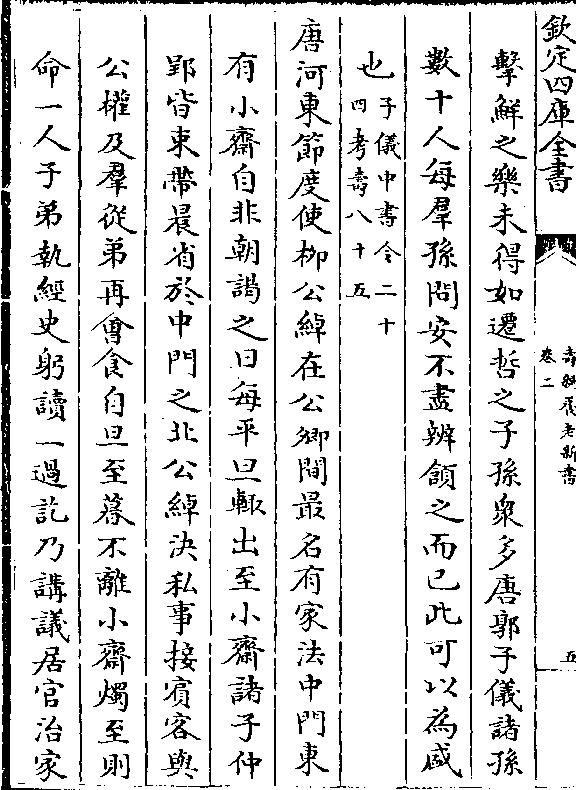 欽定四庫全書
壽親養老新書
卷二
五
擊鮮之樂未得如遷哲之子孫衆多唐郭子儀諸孫
數十人每羣孫問安不盡辨頷之而已此可以為盛
也子儀中書令二十
四考壽八十五
唐河東節度使栁公綽在公卿間最名有家法中門東
有小齋自非朝謁之日每平旦輙出至小齋諸子仲
郢皆束帶晨省於中門之北公綽決私事接賓客與
公權及羣從弟再會食自旦至暮不離小齋燭至則
命一人子弟執經史躬讀一過訖乃講議居官治家